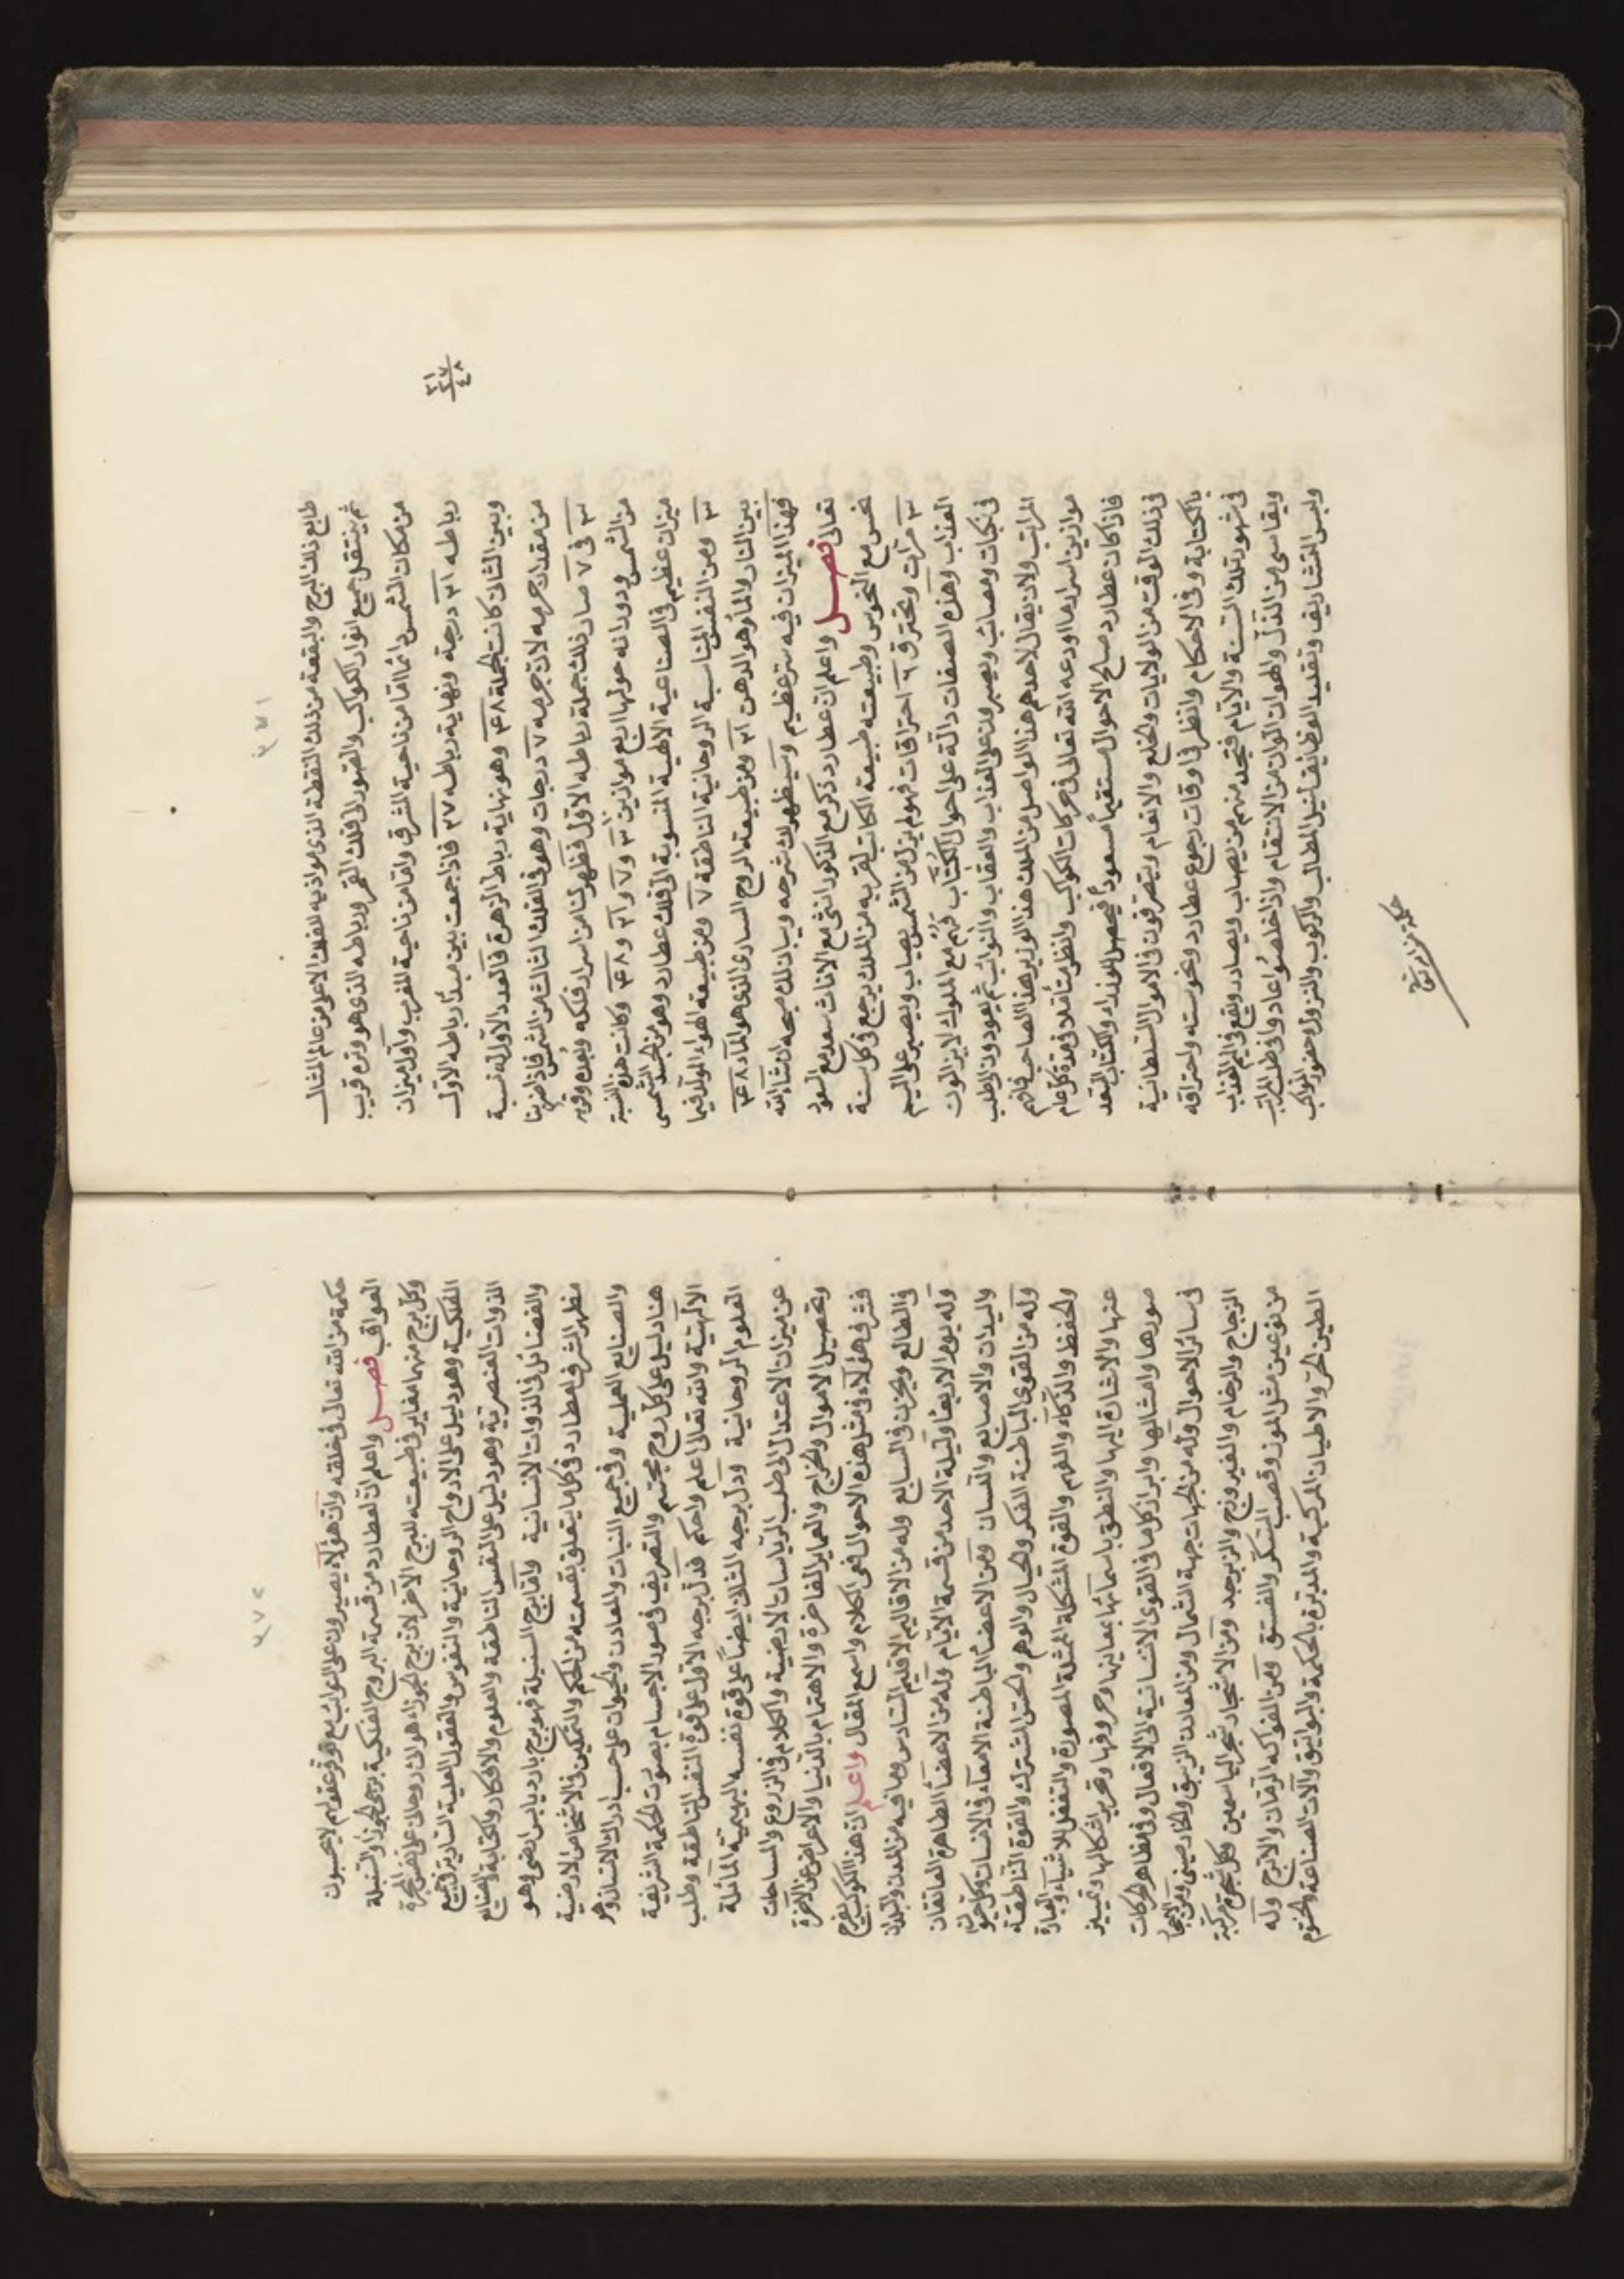 ٤٥١
طابع ذلك البرج والبقعة من ذلك النقطة الذى موازيه الاعلى من عالم المثال
ثم ينتقل جميع انوار الكواكب والصور الى فلك القمر ورباطه الذى هو وتره قريب
من مكان الشمس دائما اما من ناحية المشرق واما من ناحية المغرب واول ميزان
رباطه ٢١ درجة ونهاية رباطه ٢٧ فاذا جمعت بين مبدأ رباطه الاول
٢١
٢٧
٤٨
وبين الثانى كانت الجملة ٤٨ وهو نهاية رباط الزهرة فالعدد الاول له نسبة
من مقدار جرمه لان جرمه ٧ درجات وهو فى الفلك الثالث من الشمس فاذا ضربنا
٣ فى ٧ صار ذلك جملة رباطه الاول فظهر لنا من اسرار فلكه وبعده وقربه
من الشمس ودورانه حولها اربع موازين ٣ و ٧ و ٢١ و ٤٨ وكانت هذه النسبة
ميزان عظيم فى الصناعية الالهية المنسوبة الى فلك عطارد وهو من الجسد الشمسى
٣ ومن النفس المناسبة الروحانية الناطقة ٧ ومن طبيعة الهواء المولد فيما
بين النار والماء وهو الدهن ٢١ ومن طبيعة الروح السارى الذى هو الماء ٤٨
فهذا الميزان فيه سر عظيم وسيظهر لك شرحه وبيان ذلك صحه ان شاء الله
تعالى فصل واعلم ان عطارد ذكر مع الذكور انثى مع الاناث سعد مع السعود
نحس مع النحوس وطبيعته طبيعة الكاتب لقربه من الملك يرجع فى كل سنة
٣ مرات ويحترق ٦ احتراقات فهو لم يزل من الشمس يصاب ويصبر على اليم
العذاب وهذه الصفات دالة على احوال الكتاب فهم مع الملوك لا يزالون
فى نكبات ومصائب ويصبرون على العذاب والعقاب والنوائب ثم يعودون لطلب
المراتب ولان يقال لاحدهم هذا الواصل من الملك هذا الوزير هذا الصاحب فافهم
موازين اسرار ما اودعه الله تعالى فى حركات الكواكب وانظر متأملا فى مدة كل عام
فاذا كان عطارد صالح الاحوال مستقيما مسعودا فيحصل للوزراء والكتاب السعد
فى ذلك الوقت من الولايات والخلع والانعام ويتصرفون فى الاموال السلطانية
بالكتابة وفى الاحكام وانظر فى اوقات رجوع عطارد ونحوسته واحتراقه
فى شهور تلك السنة والايام فتجد منهم من يصاب ويصادر ويقع فى اليم العذاب
ويقاسى من الذل والهوان الوان من الانتقام واذا خلصوا عادوا فى طلب المراتب
ولبس التشاريف وتقليد الوظايف لنيل المطالب والركوب والنزول وحضور المواكب
٤٥٢
حكمة من الله تعالى فى خلقه وان هؤلاء يصبرون على النوائب مع قوة عقولهم لا يحسبون
العواقب فصل واعلم ان لعطارد من قسمة البروج الفلكية برجى الجوزاء والسنبلة
وكل برج منهما مغاير فى طبيعته للبرج الاخر لان برج الجوزاء هوائى روحانى على
الفلكية وهو دليل على الارواح الروحانية والنفوس والعقول العلية السارية فى جميع
الذوات العنصرية وهو دليل على النفس الناطقة والعلوم والافكار والكتابة والصنايع
والفضائل فى الذوات الانسانية واما برج السنبلة فهو برج بارد يابس ارضى وهو
مظهر الشرف لعطارد فى كل ما يتعلق بقسمته من الحكم والتمكين فى الاشخاص الارضية
والصنايع العملية وفى جميع النبات والمعادن والحيوان على حسب ادراك الانسان وهو
هنا دليل على كل روح مجتسم والتصريف فى صور الاجسام بصوت الحكمة الشريفة
الالهية والله تعالى اعلم واحكم فدل برجه الاول على قوة النفس الناطقة وطلب
العلوم الروحانية ودل برجه الثانى ايضا على قوة نفسه البهيمية المائلة
عن ميزان الاعتدال الى طلب الرياسات الارضية والكلام فى الزروع والمساحات
وتحصيل الاموال والخراج والعماير الفاخرة والاهتمام بالدنيا والاعراض عن الاخرة
فشرف هؤلاء فى مثل هذه الاحوال فعى الكلام واسمع المقال واعلم ان هذا الكوكب يفرح
فى الطالع ويحزن فى السابع وله من الاقاليم الاقليم السادس وما فيه من المدن والبلدان
وله يوم الاربعاء وليلة الاحد من قسمة الايام وله من الاعضاء الظاهرة العاتقان
واليدان والاصابع واللسان ومن الاعضاء الباطنة الامعاء فى الانسان وكل حيوان
وله من القوى الباطنة الفكر والخيال والوهم والحس المشترك والقوة الناطقة
والحفظ والذكاء والفهم والقوة المشكلة الممثلة المصورة والتعقل للاشياء والعبارة
عنها والاشارة اليها والنطق باسمائها ومعانيها وحروفها وتحرير اشكالها وتمييز
صورها وامثالها وابراز كل ما فى القوى الانسانية الى الافعال وفى مظاهر الحركات
فى سائر الاحوال وله من الجهات جهة الشمال ومن المعادن الزيبق والخارصينى ومن الاحجار
الزجاج والرخام والفيروزج والزبرجد ومن الاشجار شجر الياسمين وكل شجرة مركبة
من نوعين مثل الموز وقصب السكر والفستق ومن الفواكه الرمان والاترج وله
الطين الحر والاطيان المركبة والمدبرة بالحكمة والبواتق وآلات الصناعة والختوم